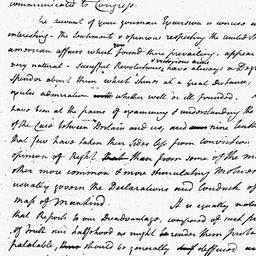 communicated to Congress.
The account of your german Excursion is concise and
interesting. The Sentiments & opinions respecting the united St
american affairs which you found there prevailing, appear
very natural - Successful Revolutions have always a Deg
splendor about them which shines at a great distance,
excites admiration whether well or ill founded.
have been at the pains of examining & understanding the
of the Case between Britain and us, and nine tenth
that few have taken their Sides less from conviction
opinion of Right than from some of the m
other more common & more stimulating Motives
usually govern the Declarations and Conduct of
Map of Mankind. It is equally natu
that Reports to our Disadvantage, composed of such pr
of truth and falsehood as might render them proba
palatable, should be generally diffused an